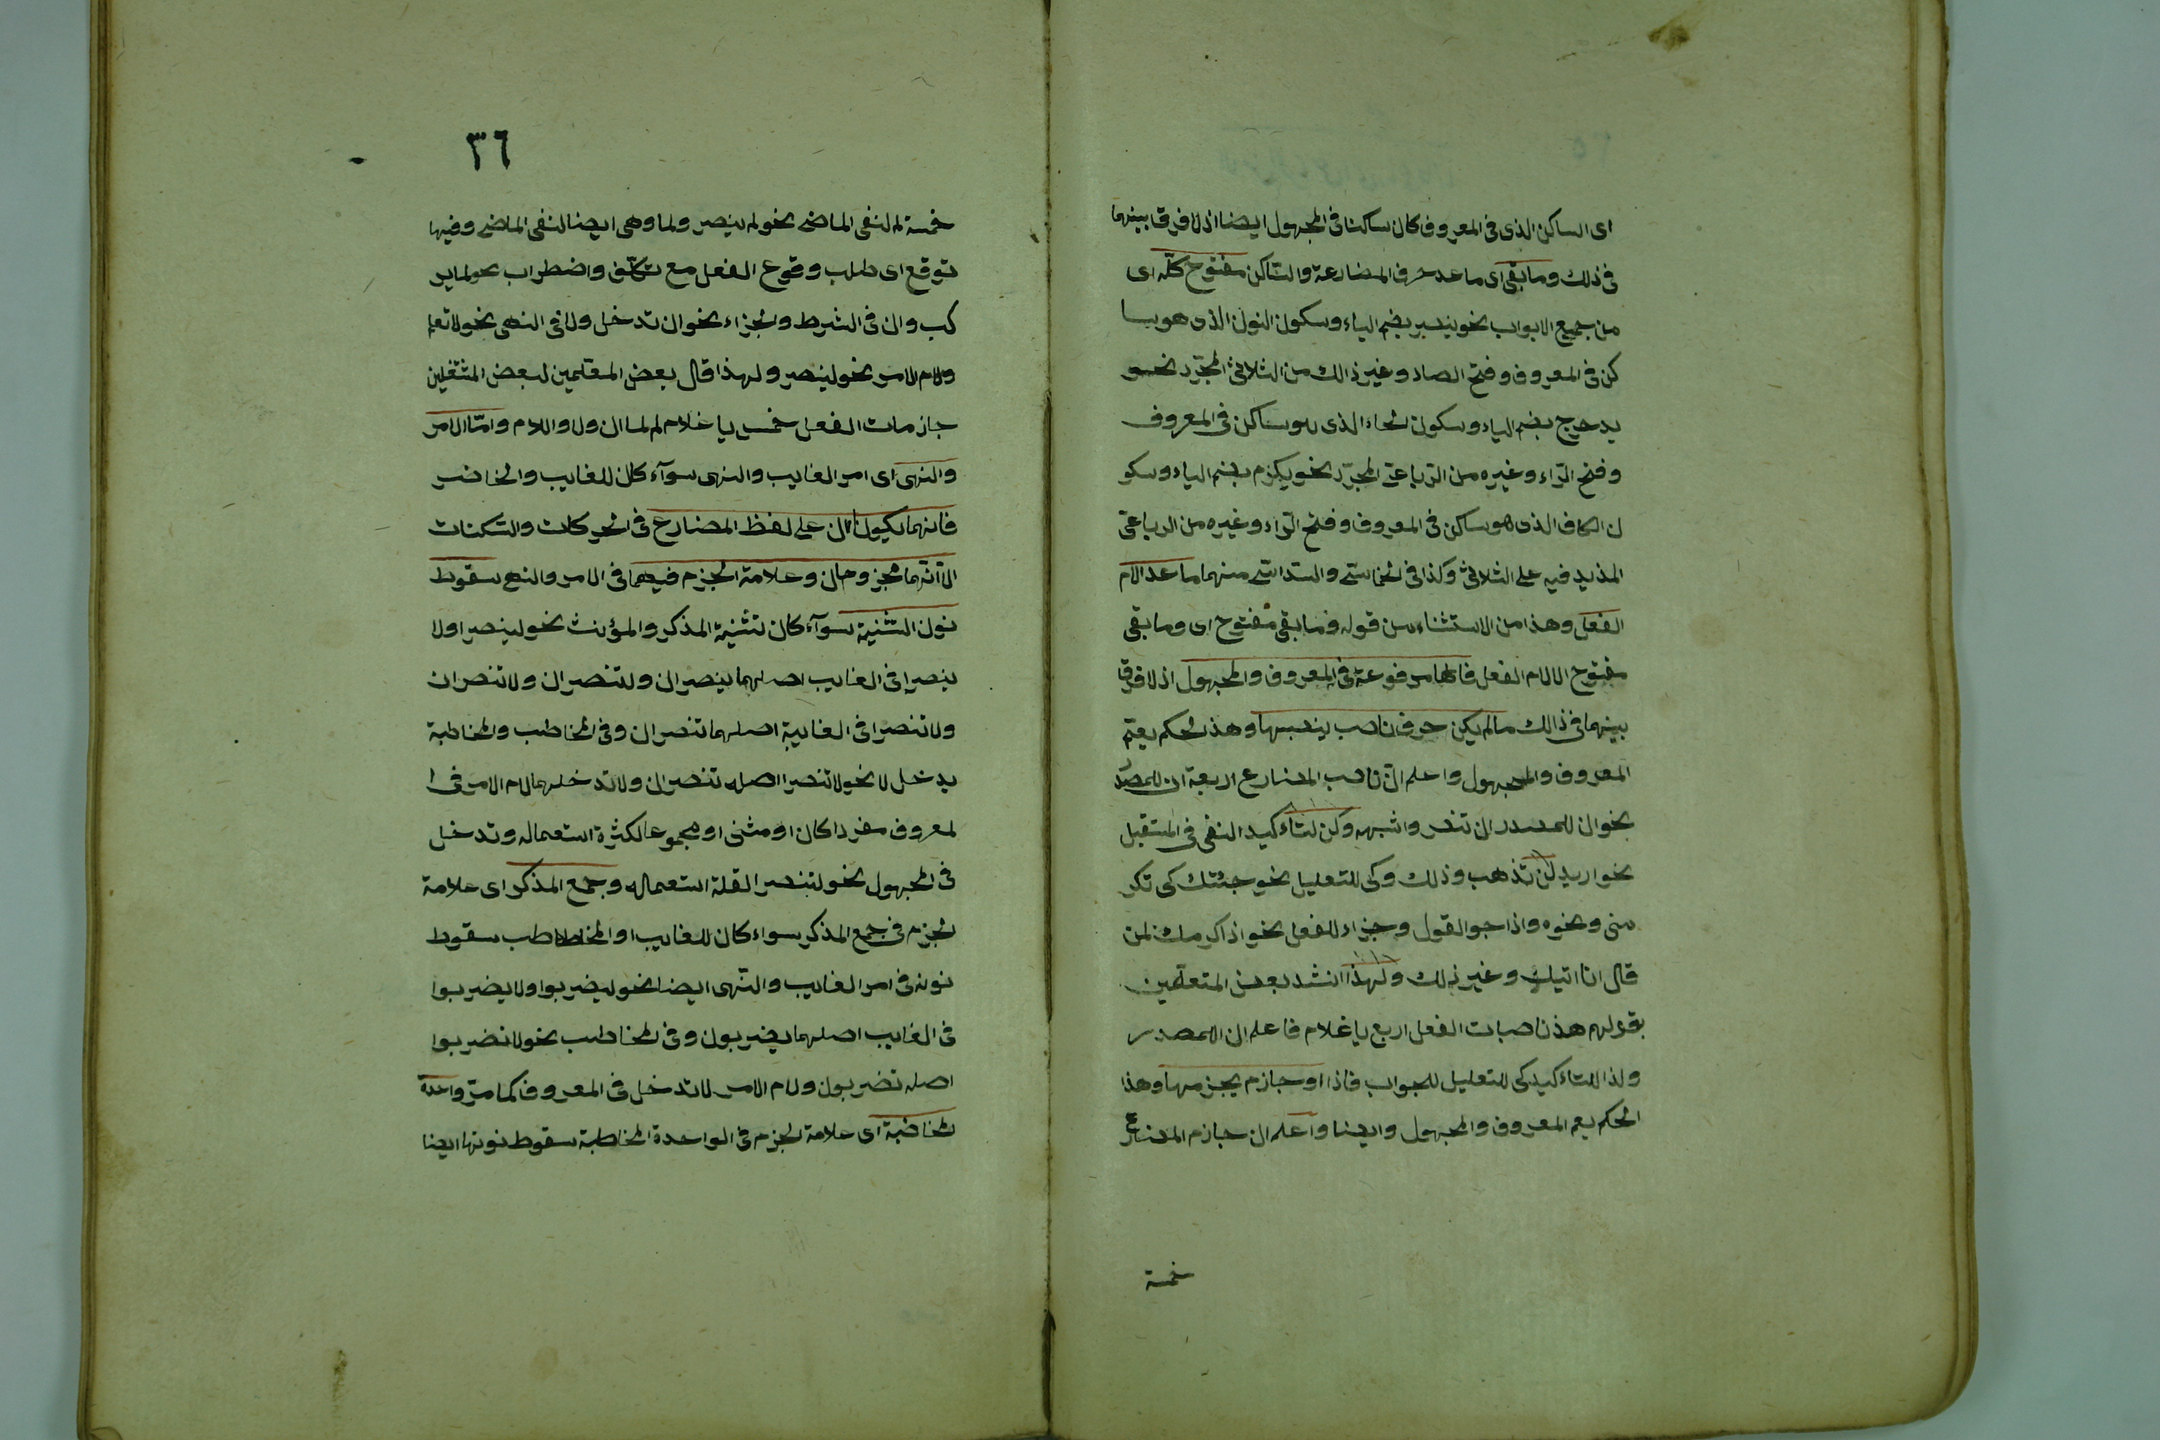 اى الساكن الذى فى المعروف كان ساكنا فى المجهول ايضا اذ لا فرق بينهما
فى ذلك وما بقى اى ما عدا حرف المضارعة والساكن مفتوح كلّه اى
من جميع الابواب نحو ينصر بضم الياء وسكون النون الذى هو سا
كن فى المعروف وفتح الصاد وغير ذالك من الثلاثى المجرّد نحو
يدحرج بضم الياء وسكون الحاء الذى هو ساكن فى المعروف
وفتح الرّاء وغيره من الرّباعىّ المجرّد نحو يكرم بضم الياء وسكو
ن الكاف الذى هو ساكن فى المعروف وفتح الرّاء وغيره من الرباعىّ
المذيد فيه على الثلاثىّ وكذا فى الخماسىّ والسّداسىّ منهما ما عدا لام
الفعل وهذا من الاستثناء من قوله وما بقى مفتوح اى وما بقى
مفتوح الا لام الفعل فانّها مرفوعة فى المعروف والمجهول اذ لا فرقا
بينهما فى ذالك ما لم يكن حرف ناصب ينصبها وهذا الحكم يعمّ
المعروف والمجهول واعلم انّ ناصب المضارع اربعة ان للمصدر
نحو ان للمصدر ان تنصر واشبهه ولن لتاءكيد النفى فى المستقبل
نحو اريد لن تذهب وذلك وكى للتعليل نحو جئتك كى تكر
منى ونحوه واذا جوالقول وجزاء للفعل نحو اذا كرمك لمن
قال انا اتيك وغير ذلك ولهذا انشد بعض المتعلّمين
بقولهم هذ ناصبات الفعل اربع يا غلام فاعلم ان المصدر
ولذا للتاءكيد كى للتعليل للجواب فاذا او جازم يجزمها وهذا
الحكم يعم المعروف والمجهول وايضا واعلم ان جازم المضارع
خمسة
٣٦
خمسة لم لنفى الماضى نحو لم ينصر ولما وهى ايضا لنفى الماضى وفيها
توقع اى طلب وقوع الفعل مع تكلّف واضطراب نحو لما ير
كب وان فى الشرط والجزاء نحو ان تدخل ولا فى النهى نحو لا تعلم
ولام الامر نحو لينصر ولهذا قال بعض المعلّمين لبعض المشتغلين
جازمات الفعل خمس يا غلام لم لما ان ولا واللام وامّا الامر
والنهى اى امر الغايب والنهى سوآء كان للغايب والحاضر
فانهما يكونان على لفظ المضارع فى الحركات والسّكنات
الّا انّهما مجزومان وعلامة الجزم فيهما فى الامر والنهى سقوط
نون التّثنية سوآء كان تثنية المذكر والمؤنث نحو لينصرا ولا
ينصرا فى الغايب اصلهما ينصران ولتنصران ولا تنصران
ولا تنصرا فى الغايبة اصلهما تنصران وفى المخاطب والمخاطبة
يدخل لا نحو لا تنصرا اصله تنصران ولا تدخلهما لام الامر فى ا
لمعروف مفردا كان او مثنى او مجموعا لكثرة استعماله وتدخل
فى المجهول نحو لتنصر القلة استعماله وجمع المذكر اى علامة
الجزم فى جمع المذكر سواء كان للغايب او المخاطب سقوط
نونه فى امر الغايب والنّهى ايضا نحو ليضربوا ولا يضربوا
فى الغايب اصلهما يضربون وفى المخاطب نحو لا تضربوا
اصله تضربون ولام الامر لا تدخل فى المعروف كما مرّ واحدة
المخاطبة اى علامة الجزم فى الواحدة المخاطبة سقوط نونها ايضا